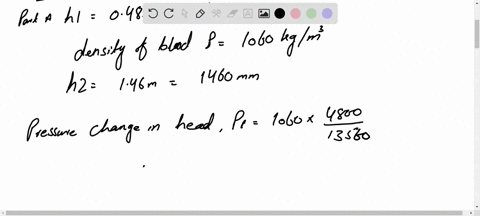 Part A h1 = 0.48
density of blood ρ = 1060 kg/m³
h2 = 1.46m = 1460mm
Pressure change in head, P1 = 1060 × 4800/13560